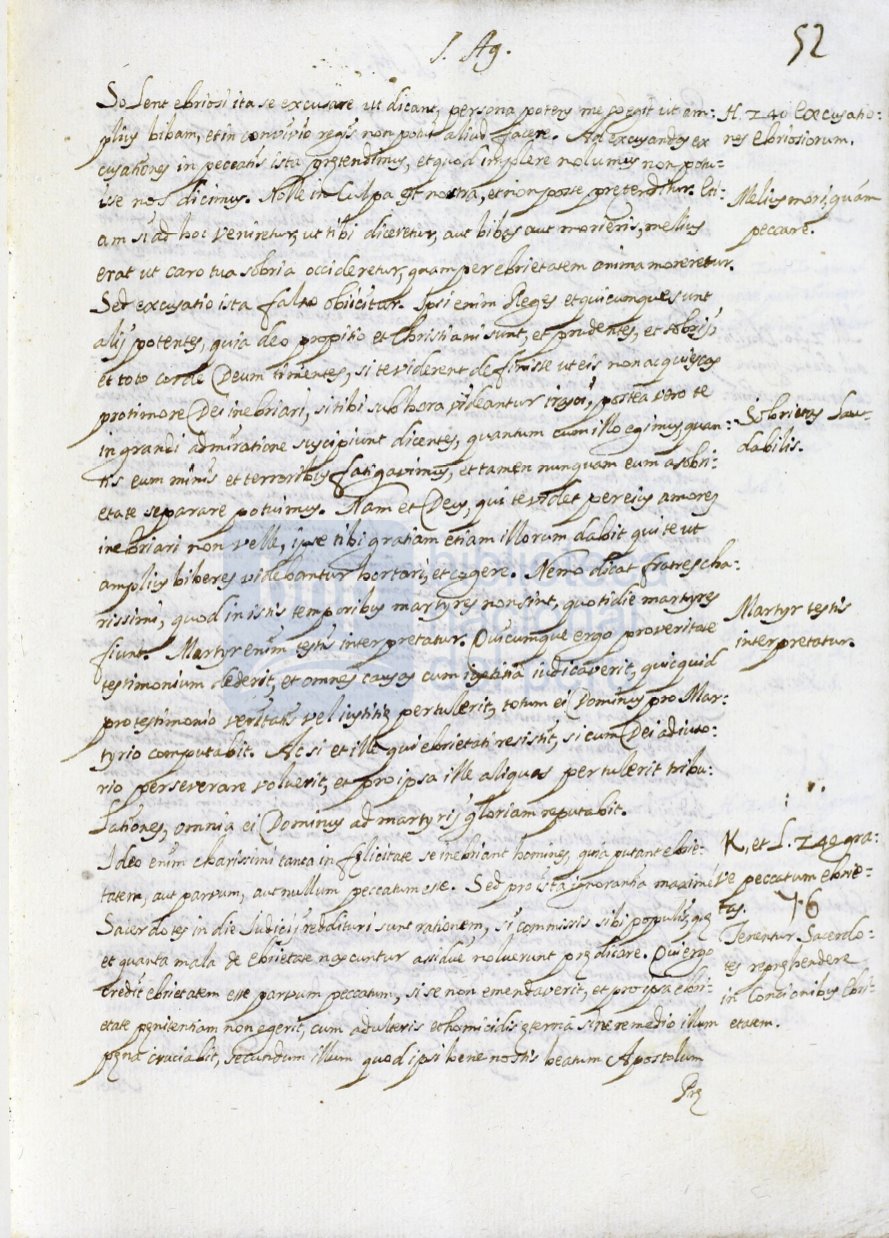 S. Ag.
52
Solent ebriosi ita se excusare ut dicant, persona potens me coegit ut am:
plius bibam, et in convivio regis non potui aliud facere. Ad excusandas ex
cusationes in peccatis ista prętendimus, et quod implere nolumus non potu:
isse nos dicimus. Nolle in culpa est nostra, et non posse prętenditur. Eti:
am si ad hoc veniretur, ut tibi diceretur, aut bibes aut morieris, melius
erat ut caro tua sobria occideretur, quam per ebrietatem anima moreretur.
Sed excusatio ista falso obiicitur. Ipsi enim Reges et quicumque sunt
alij potentes, quia deo propitio et Christiani sunt, et prudentes, et sobrij,
et toto corde Deum timentes, si te viderent definisse ut eis non acquiescas
pro timore Dei inebriari, si tibi sub hora videantur irasci, postea vero te
in grandi admiratione suscipiunt dicentes, quantum cum illo egimus, quan:
tis eum minis et terroribus fatigavimus, et tamen nunquam eum a sobri:
etate separare potuimus. Nam et Deus, qui te videt per eius amorem
inebriari non velle, ipse tibi gratiam etiam illorum dabit qui te ut
amplius biberes videbantur hortari, et cogere. Nemo dicat fratres cha:
rissimi, quod in istis temporibus martyres non sint, quotidie martyres
fiunt. Martyr enim testis interpretatur. Quicumque ergo pro veritate
testimonium dederit, et omnes causas cum iustitia iudicaverit, quicquid
pro testimonio veritatis vel iustitię pertulerit, totum ei Dominus pro Mar:
tyrio computabit. Ac si et ille qui ebrietati resistit, si cum Dei adiuto:
rio perseverare voluerit, et pro ipsa ille aliquas pertulerit tribu:
lationes, omnia ei Dominus ad martyrij gloriam reputabit.
Ideo enim charissimi tanta infelicitate se inebriant homines, quia putant ebrie:
tatem, aut parvum, aut nullum peccatum esse. Sed pro ista ignorantia maximè
Sacerdotes in die Iudicij reddituri sunt rationem, si commissis sibi populis, quę
et quanta mala de ebrietate nascuntur assiduè noluerunt prędicare. Qui ergo
credit ebrietatem esse parvum peccatum, si se non emendaverit, et pro ipsa ebri:
etate pęnitentiam non egerit, cum adulteris et homicidis ęterna sine remedio illum
pęna cruciabit, secundum illum quod ipsi bene nostis beatum Apostolum
Prę
H. 240 Excusatio:
nes ebriosorum.
Melius mori, quàm
peccare.
Sobrietas Lau:
dabilis.
Martyr testis
interpretatur.
K, et L. 242 gra:
ve peccatum ebrie:
tas.
76
Tenentur Sacerdo:
tes reprehendere
in Concionibus Ebri:
etatem.
biblioteca
nacional
del perú